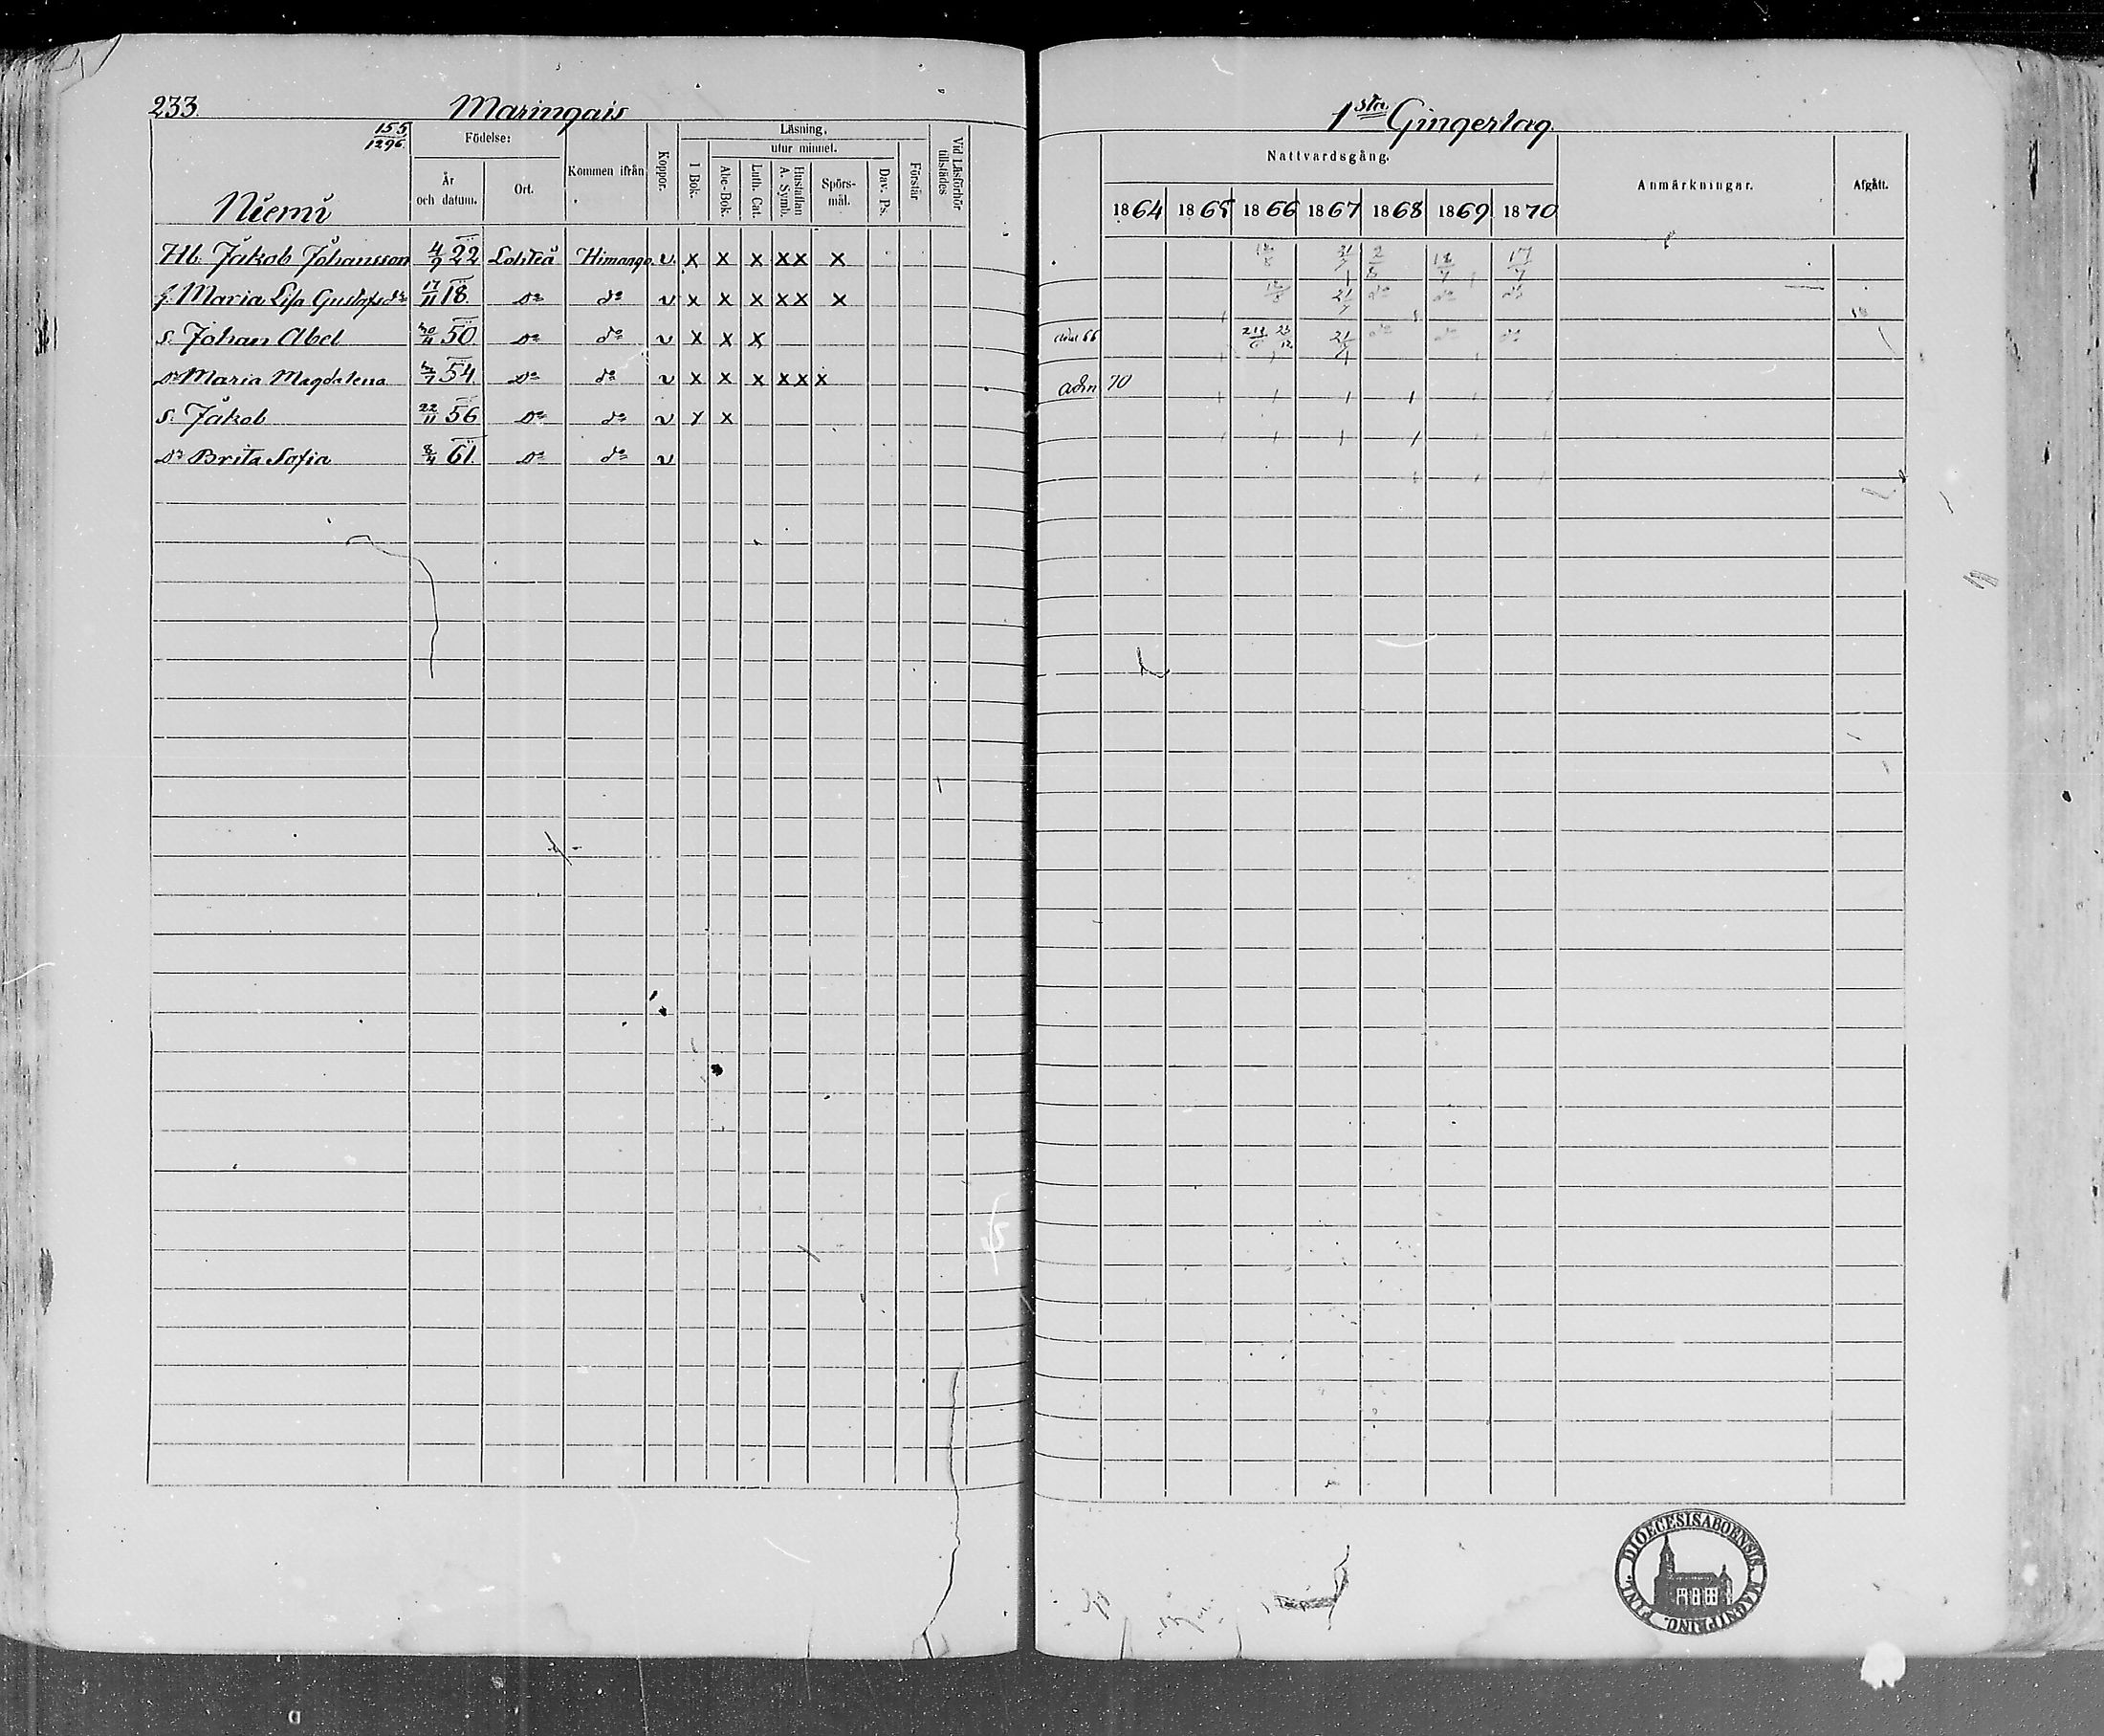 233. Maringais
155
1296.
Niemi
Födelse:
År och datum.
Ort.
Kommen ifrån
Koppor.
Läsning,
utur minnet.
I Bok.
Abc-Bok.
Luth. Cat.
Hustaflan A. Symb.
Spörs-mål.
Dav. Ps.
Förstår
Vid Läsförhör tillstädes
Hb. Jakob Johansson 4/9 22 Lohteå Himango. v x x x x x x
h. Maria Lisa Gustafsdr 17/11 18. Do do v x x x x x x
s. Johan Abel 30/11 50 Do do v x x x
Dr Maria Magdalena 54 Do do v x x x x x x
s. Jakob 22/11 56 Do do v x x
Dr Brita Sofia 8/4 61. Do do v
1sta Gingerlag.
Nattvardsgång.
Anmärkningar.
Afgått.
1864 1865 1866 1867 1868 1869 1870
21/7 2/8 18/7 17/7
21/7 do do do
adm 66 21/7 do do do
adm 70
DIOECESIS ABOENSIS MAGNI PRINC. FINL.